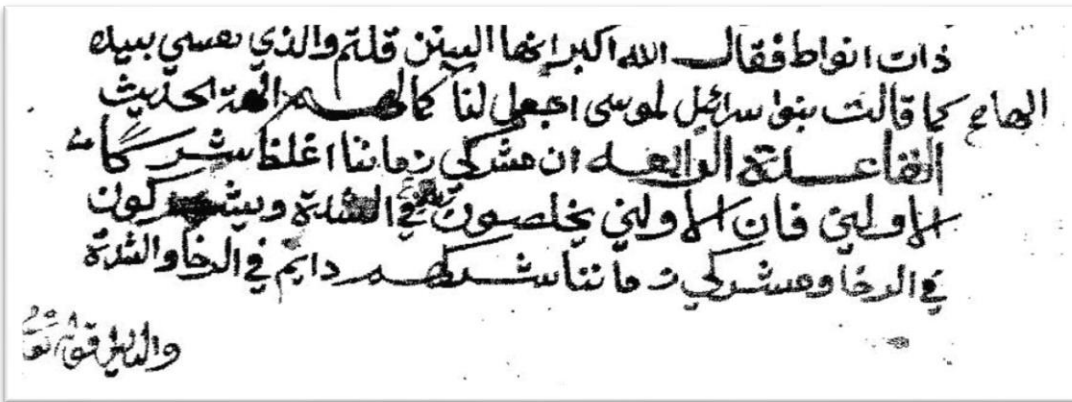 ذات انواط فقال الله اكبر إنها السنن قلتم والذي نفسي بيده
كما قالت بنوا سرائيل لموسى اجعل لنا كما لهم الهة الحديث
القاعدة الرابعه ان مشركي زماننا اغلظ شركا من
الاولين فان الاولين يخلصون في الشدة ويشركون
في الرخا ومشركي زماننا شركهم دايم في الرخا والشدة
والدليل قوله تعا